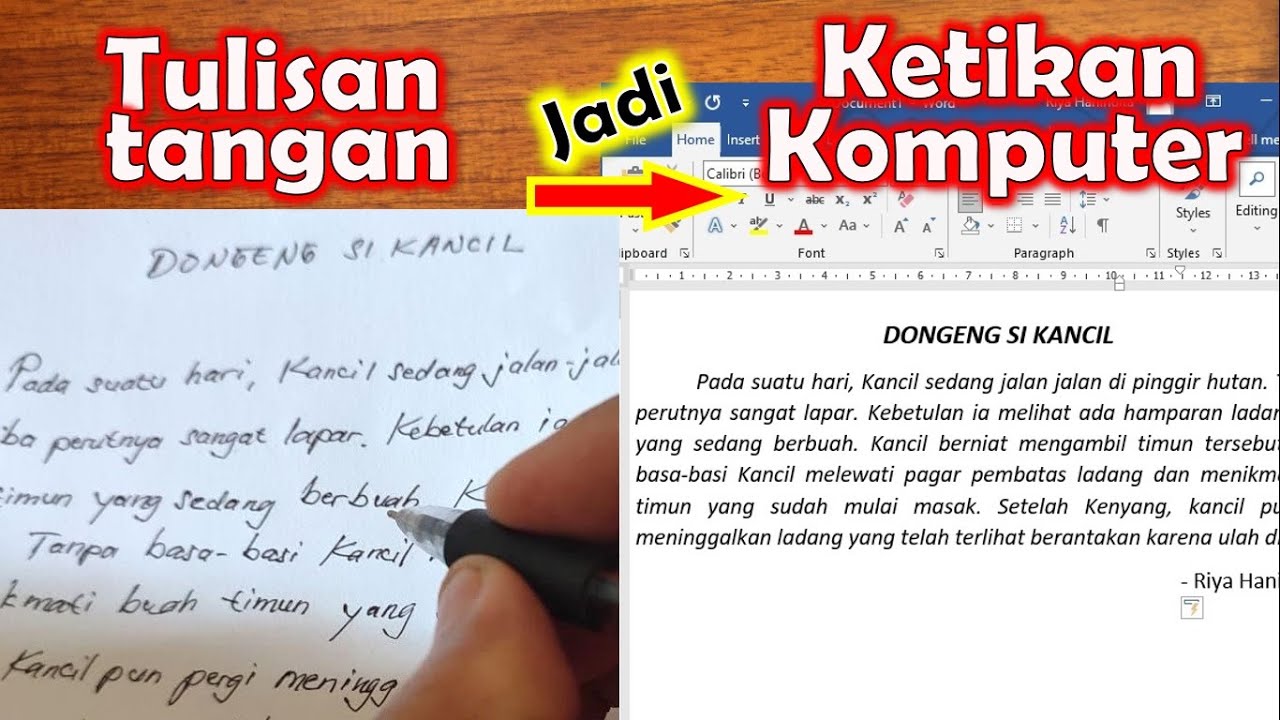 Tulisan
tangan
Jadi
Ketikan
Komputer
Document1 - Word
File
Home
Insert
Tell me
Calibri (B
U
abc
x₂
x²
A
A
Aa
A
A
Styles
Editing
Clipboard
Font
Paragraph
Styles
1 2 3 4 5 6 7 8 9 10 11 12 13
DONGENG SI KANCIL
Pada suatu hari, Kancil sedang jalan-jal
iba perutnya sangat lapar. Kebetulan ia
timun yang sedang berbuah K
Tanpa basa-basi Kancil
kmati buah timun yang
Kancil pun pergi meningg
DONGENG SI KANCIL
Pada suatu hari, Kancil sedang jalan jalan di pinggir hutan. T
perutnya sangat lapar. Kebetulan ia melihat ada hamparan ladan
yang sedang berbuah. Kancil berniat mengambil timun tersebu
basa-basi Kancil melewati pagar pembatas ladang dan menikma
timun yang sudah mulai masak. Setelah Kenyang, kancil pu
meninggalkan ladang yang telah terlihat berantakan karena ulah di
- Riya Hani